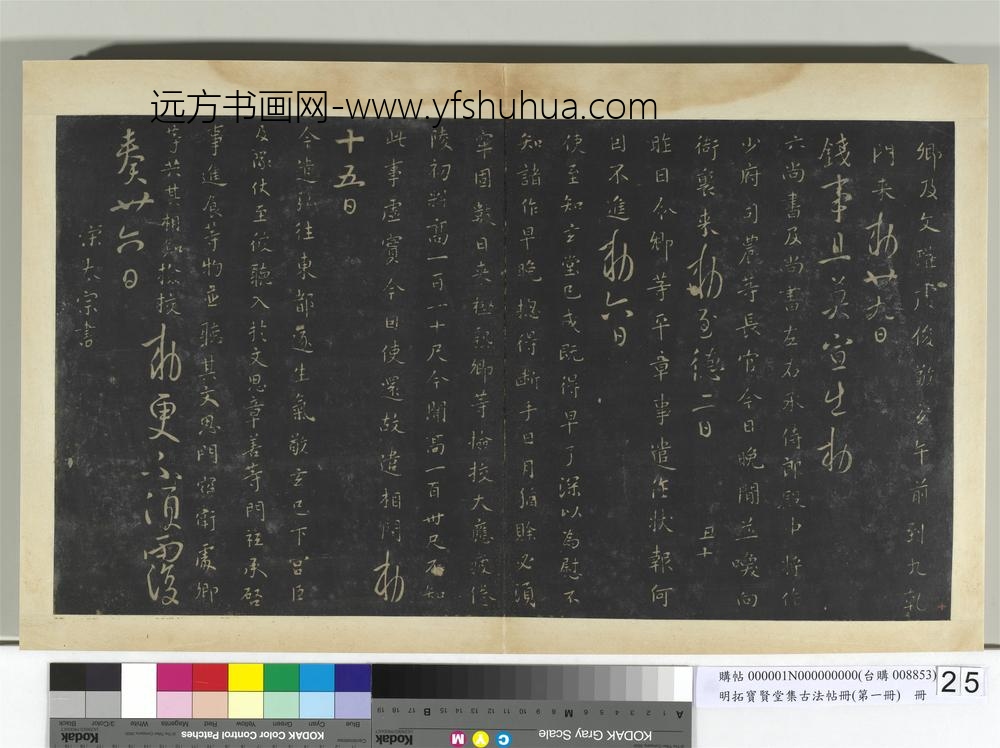 远方书画网-www.yfshuhua.com
卿及文瓘求俊敬玄午前到九乾
門夹勅廿九日
錢事且莫宣出勅
六尚書及尚書左右丞侍郎殿中將作
少府司農等長官今日晚間並喚向
衙裏来勅至德二日
昨日令卿等平章事遣作狀報何
因不進勅六日
使至知玄堂已成既得早了深以為慰不
知諸作早晚揔得斷手日月猶賒必須
牢固数日来極熱卿等檢校大應疲倦
陵初料高一百一十尺今聞高一百卅尺不知
此事虛實今因使還故遣相問勅
十五日
今遣弘往東都逐生氣敬玄已下
及隊仗至後聽入於文思章善等門祗承啓
事進食等物並聽其文思門宿衛處卿
等共其相知撿挍勅更不須覆
奏廿六日
宋太宗書
購帖 000001N000000000(台購 008853)
明拓寶賢堂集古法帖冊(第一冊) 冊
25
KODAK Color Control Patches
Kodak
KODAK Gray Scale
Kodak
C Y M
Blue Cyan Green Yellow Red Magenta White 3/Color Black
A 1 2 3 4 5 6 M 8 9 10 11 12 13 14 15 B 17 18 19